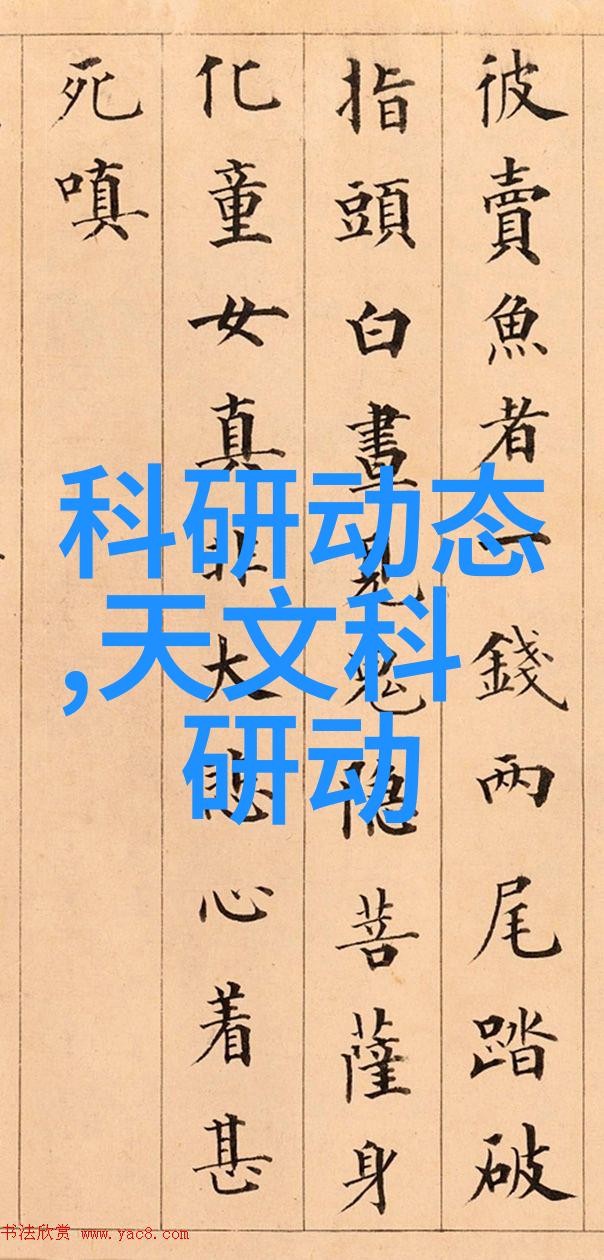 彼賣魚者一錢两尾踏破
指頭白晝見鬼隐菩薩身
化童女真非大慈心着甚
死嗔
科研动态
,天文科
研动
书法欣赏 www.yac8.com